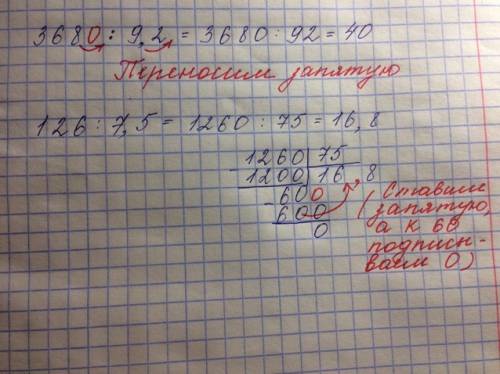 3680 : 9,2 = 3680 : 92 = 40
Переносим запятую
126 : 7,5 = 1260 : 75 = 16,8
1260 75
- 1200 16 8
- 600
600
0
(Ставим
запятую,
а к 60
подписы-
ваем 0)